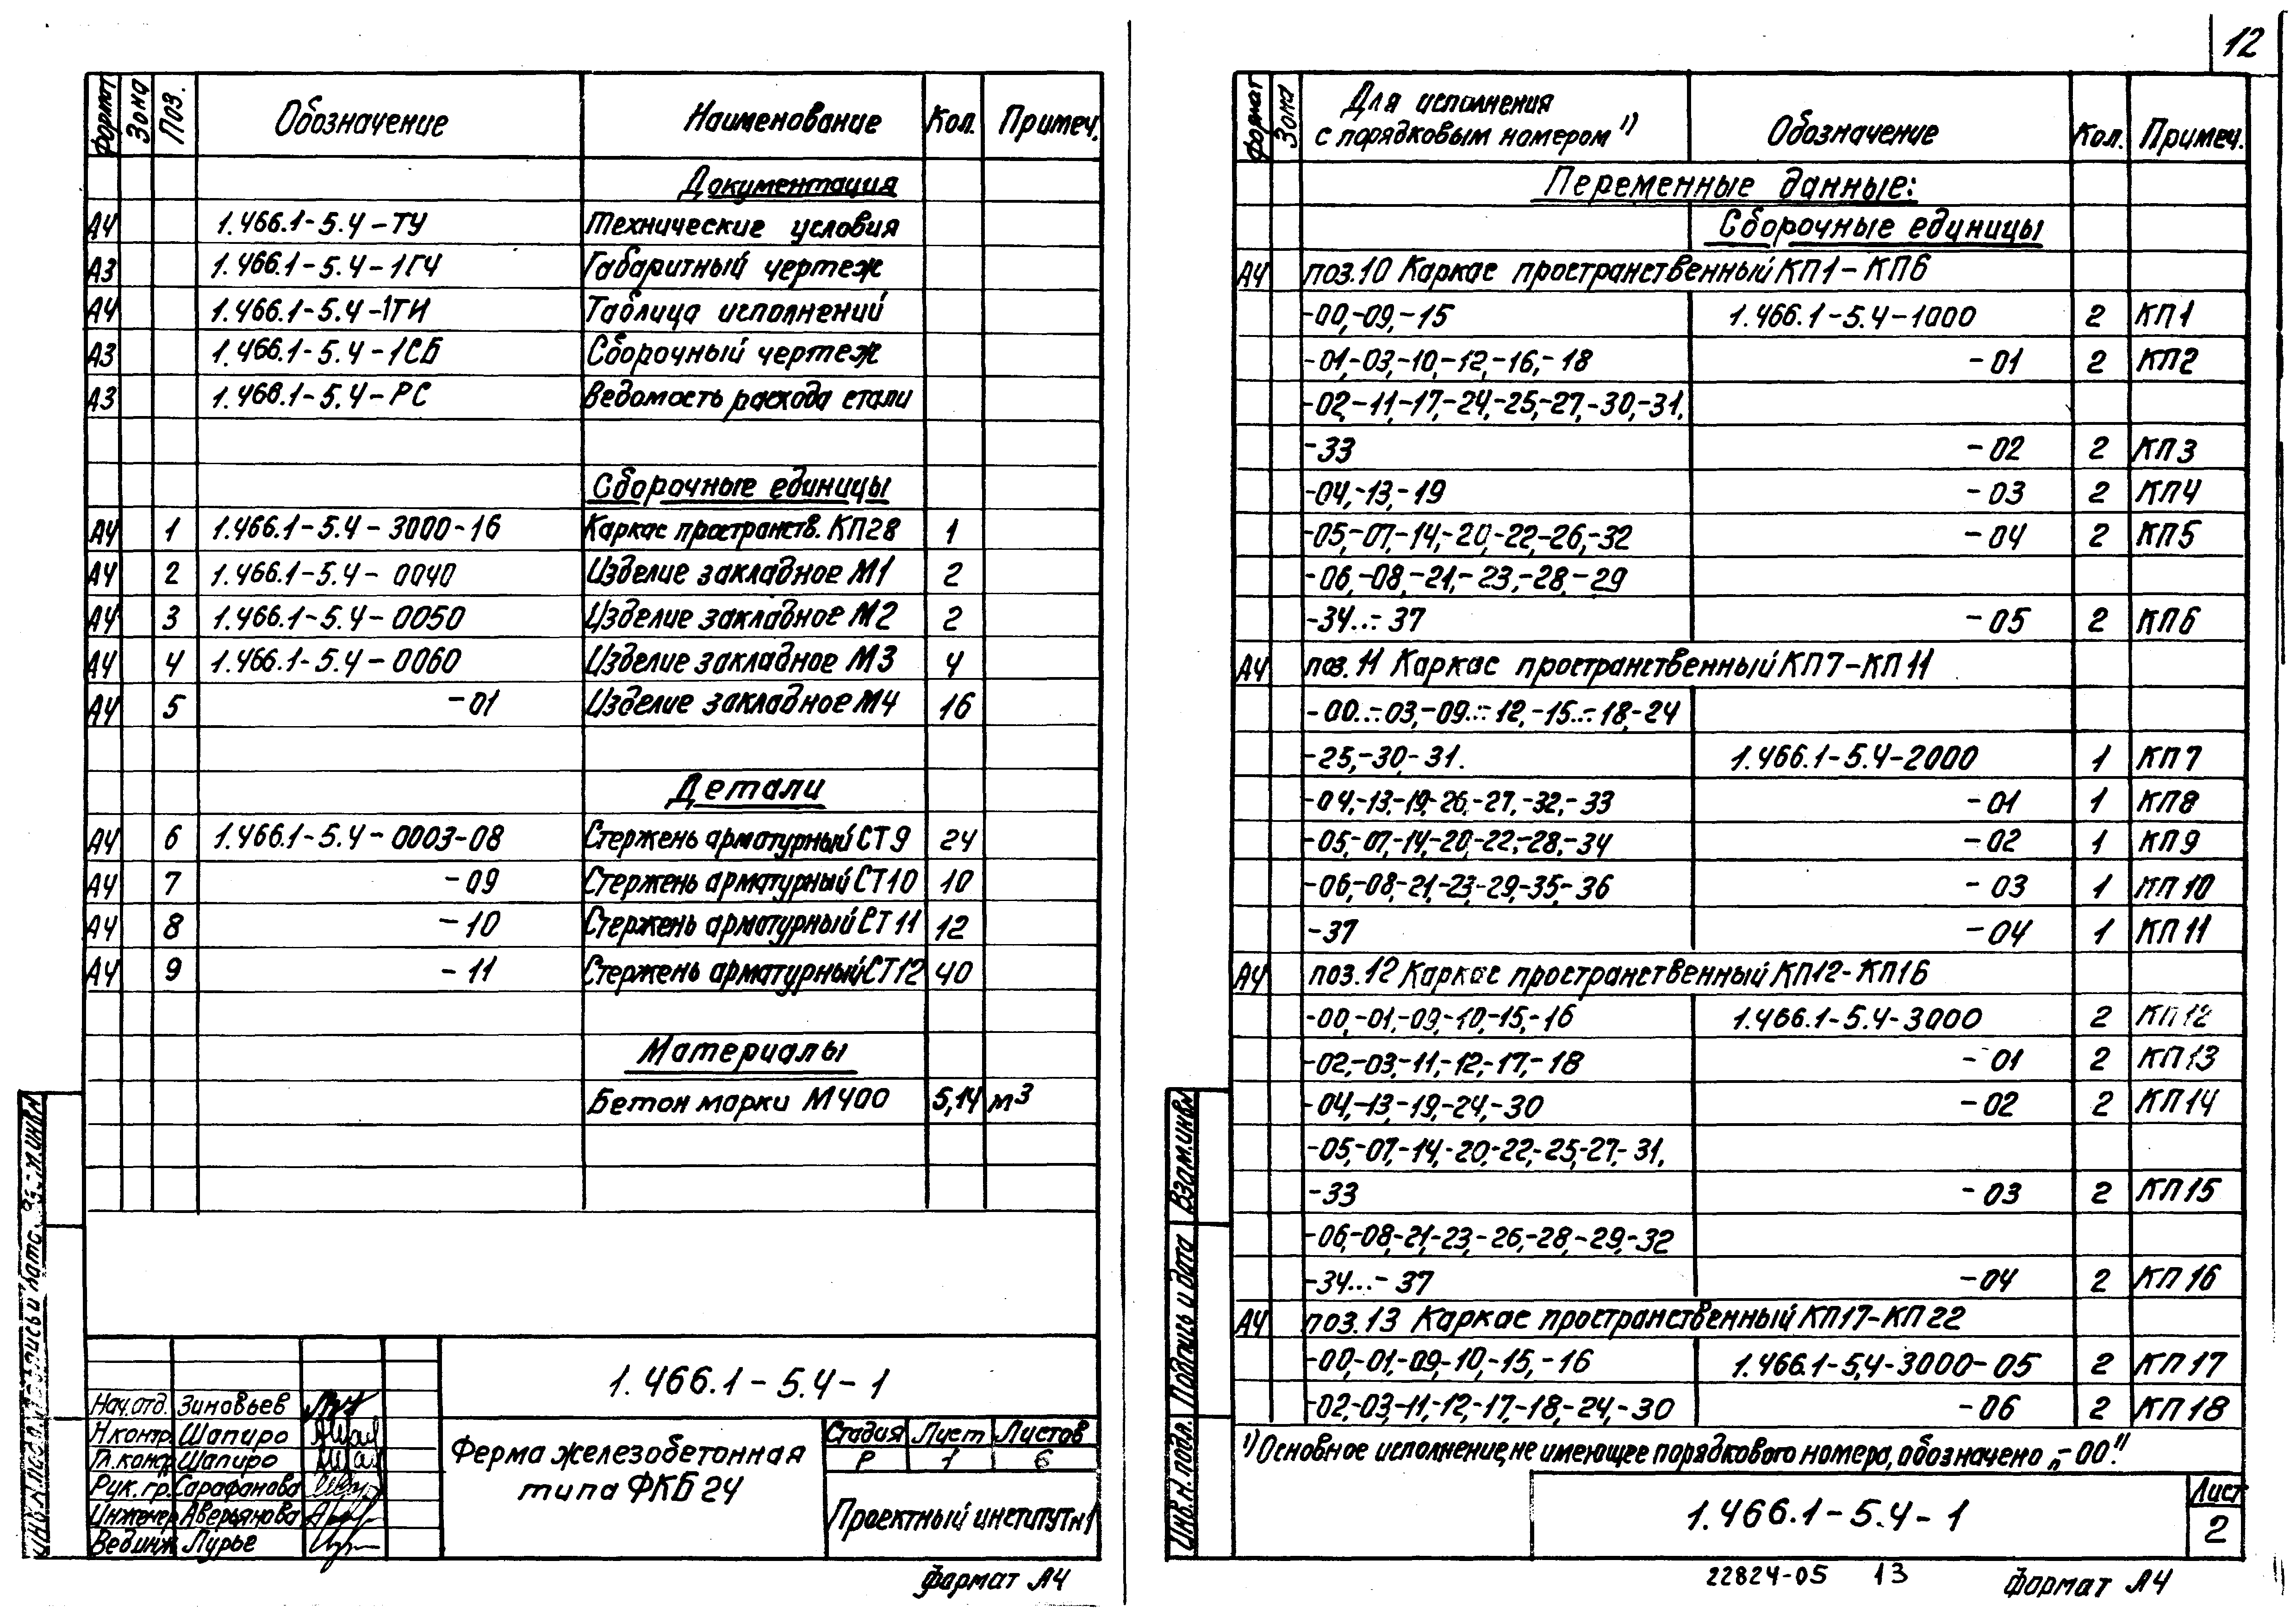 12
Формат Зона Поз. Обозначение Наименование Кол. Примеч.
Документация
А4 1.466.1-5.4-ТУ Технические условия
А3 1.466.1-5.4-1ГЧ Габаритный чертеж
А4 1.466.1-5.4-1ТИ Таблица исполнений
А3 1.466.1-5.4-1СБ Сборочный чертеж
А3 1.466.1-5.4-РС Ведомость расхода стали
Сборочные единицы
А4 1 1.466.1-5.4-3000-16 Каркас пространств. КП28 1
А4 2 1.466.1-5.4-0040 Изделие закладное М1 2
А4 3 1.466.1-5.4-0050 Изделие закладное М2 2
А4 4 1.466.1-5.4-0060 Изделие закладное М3 4
А4 5 -01 Изделие закладное М4 16
Детали
А4 6 1.466.1-5.4-0003-08 Стержень арматурный СТ9 24
А4 7 -09 Стержень арматурный СТ10 10
А4 8 -10 Стержень арматурный СТ11 12
А4 9 -11 Стержень арматурный СТ12 40
Материалы
Бетон марки М400 5,14 м3
1.466.1-5.4-1
Нач.отд. Зиновьев
Н.контр. Шапиро
Гл.констр. Шапиро
Рук. гр. Сарафанова
Инженер Аверьянова
Вед.инж. Лурье
Ферма железобетонная
типа ФКБ 24
Стадия Лист Листов
Р 1 6
Проектный институт №1
Формат А4
Инв.№ подл. Подпись и дата Взам.инв.№
Формат Зона Для исполнения
с порядковым номером 1) Обозначение Кол. Примеч.
Переменные данные:
Сборочные единицы
А4 поз.10 Каркас пространственный КП1-КП6
-00,-09,-15 1.466.1-5.4-1000 2 КП1
-01,-03,-10,-12,-16,-18 -01 2 КП2
-02,-11,-17,-24,-25,-27,-30,-31,
-33 -02 2 КП3
-04,-13,-19 -03 2 КП4
-05,-07,-14,-20,-22,-26,-32 -04 2 КП5
-06,-08,-21,-23,-28,-29
-34...-37 -05 2 КП6
А4 поз.11 Каркас пространственный КП7-КП11
-00...-03,-09...-12,-15...-18,-24
-25,-30,-31. 1.466.1-5.4-2000 1 КП7
-04,-13,-19,-26,-27,-32,-33 -01 1 КП8
-05,-07,-14,-20,-22,-28,-34 -02 1 КП9
-06,-08,-21,-23,-29,-35,-36 -03 1 КП10
-37 -04 1 КП11
А4 поз.12 Каркас пространственный КП12-КП16
-00,-01,-09,-10,-15,-16 1.466.1-5.4-3000 2 КП12
-02,-03,-11,-12,-17,-18 -01 2 КП13
-04,-13,-19,-24,-30 -02 2 КП14
-05,-07,-14,-20,-22,-25,-27,-31,
-33 -03 2 КП15
-06,-08,-21,-23,-26,-28,-29,-32
-34...-37 -04 2 КП16
А4 поз.13 Каркас пространственный КП17-КП22
-00,-01,-09,-10,-15,-16 1.466.1-5,4-3000-05 2 КП17
-02,-03,-11,-12,-17,-18,-24,-30 -06 2 КП18
1) Основное исполнение, не имеющее порядкового номера, обозначено „-00".
1.466.1-5.4-1
Лист
2
22824-05 13
Формат А4
Инв.№ подл. Подпись и дата Взам.инв.№